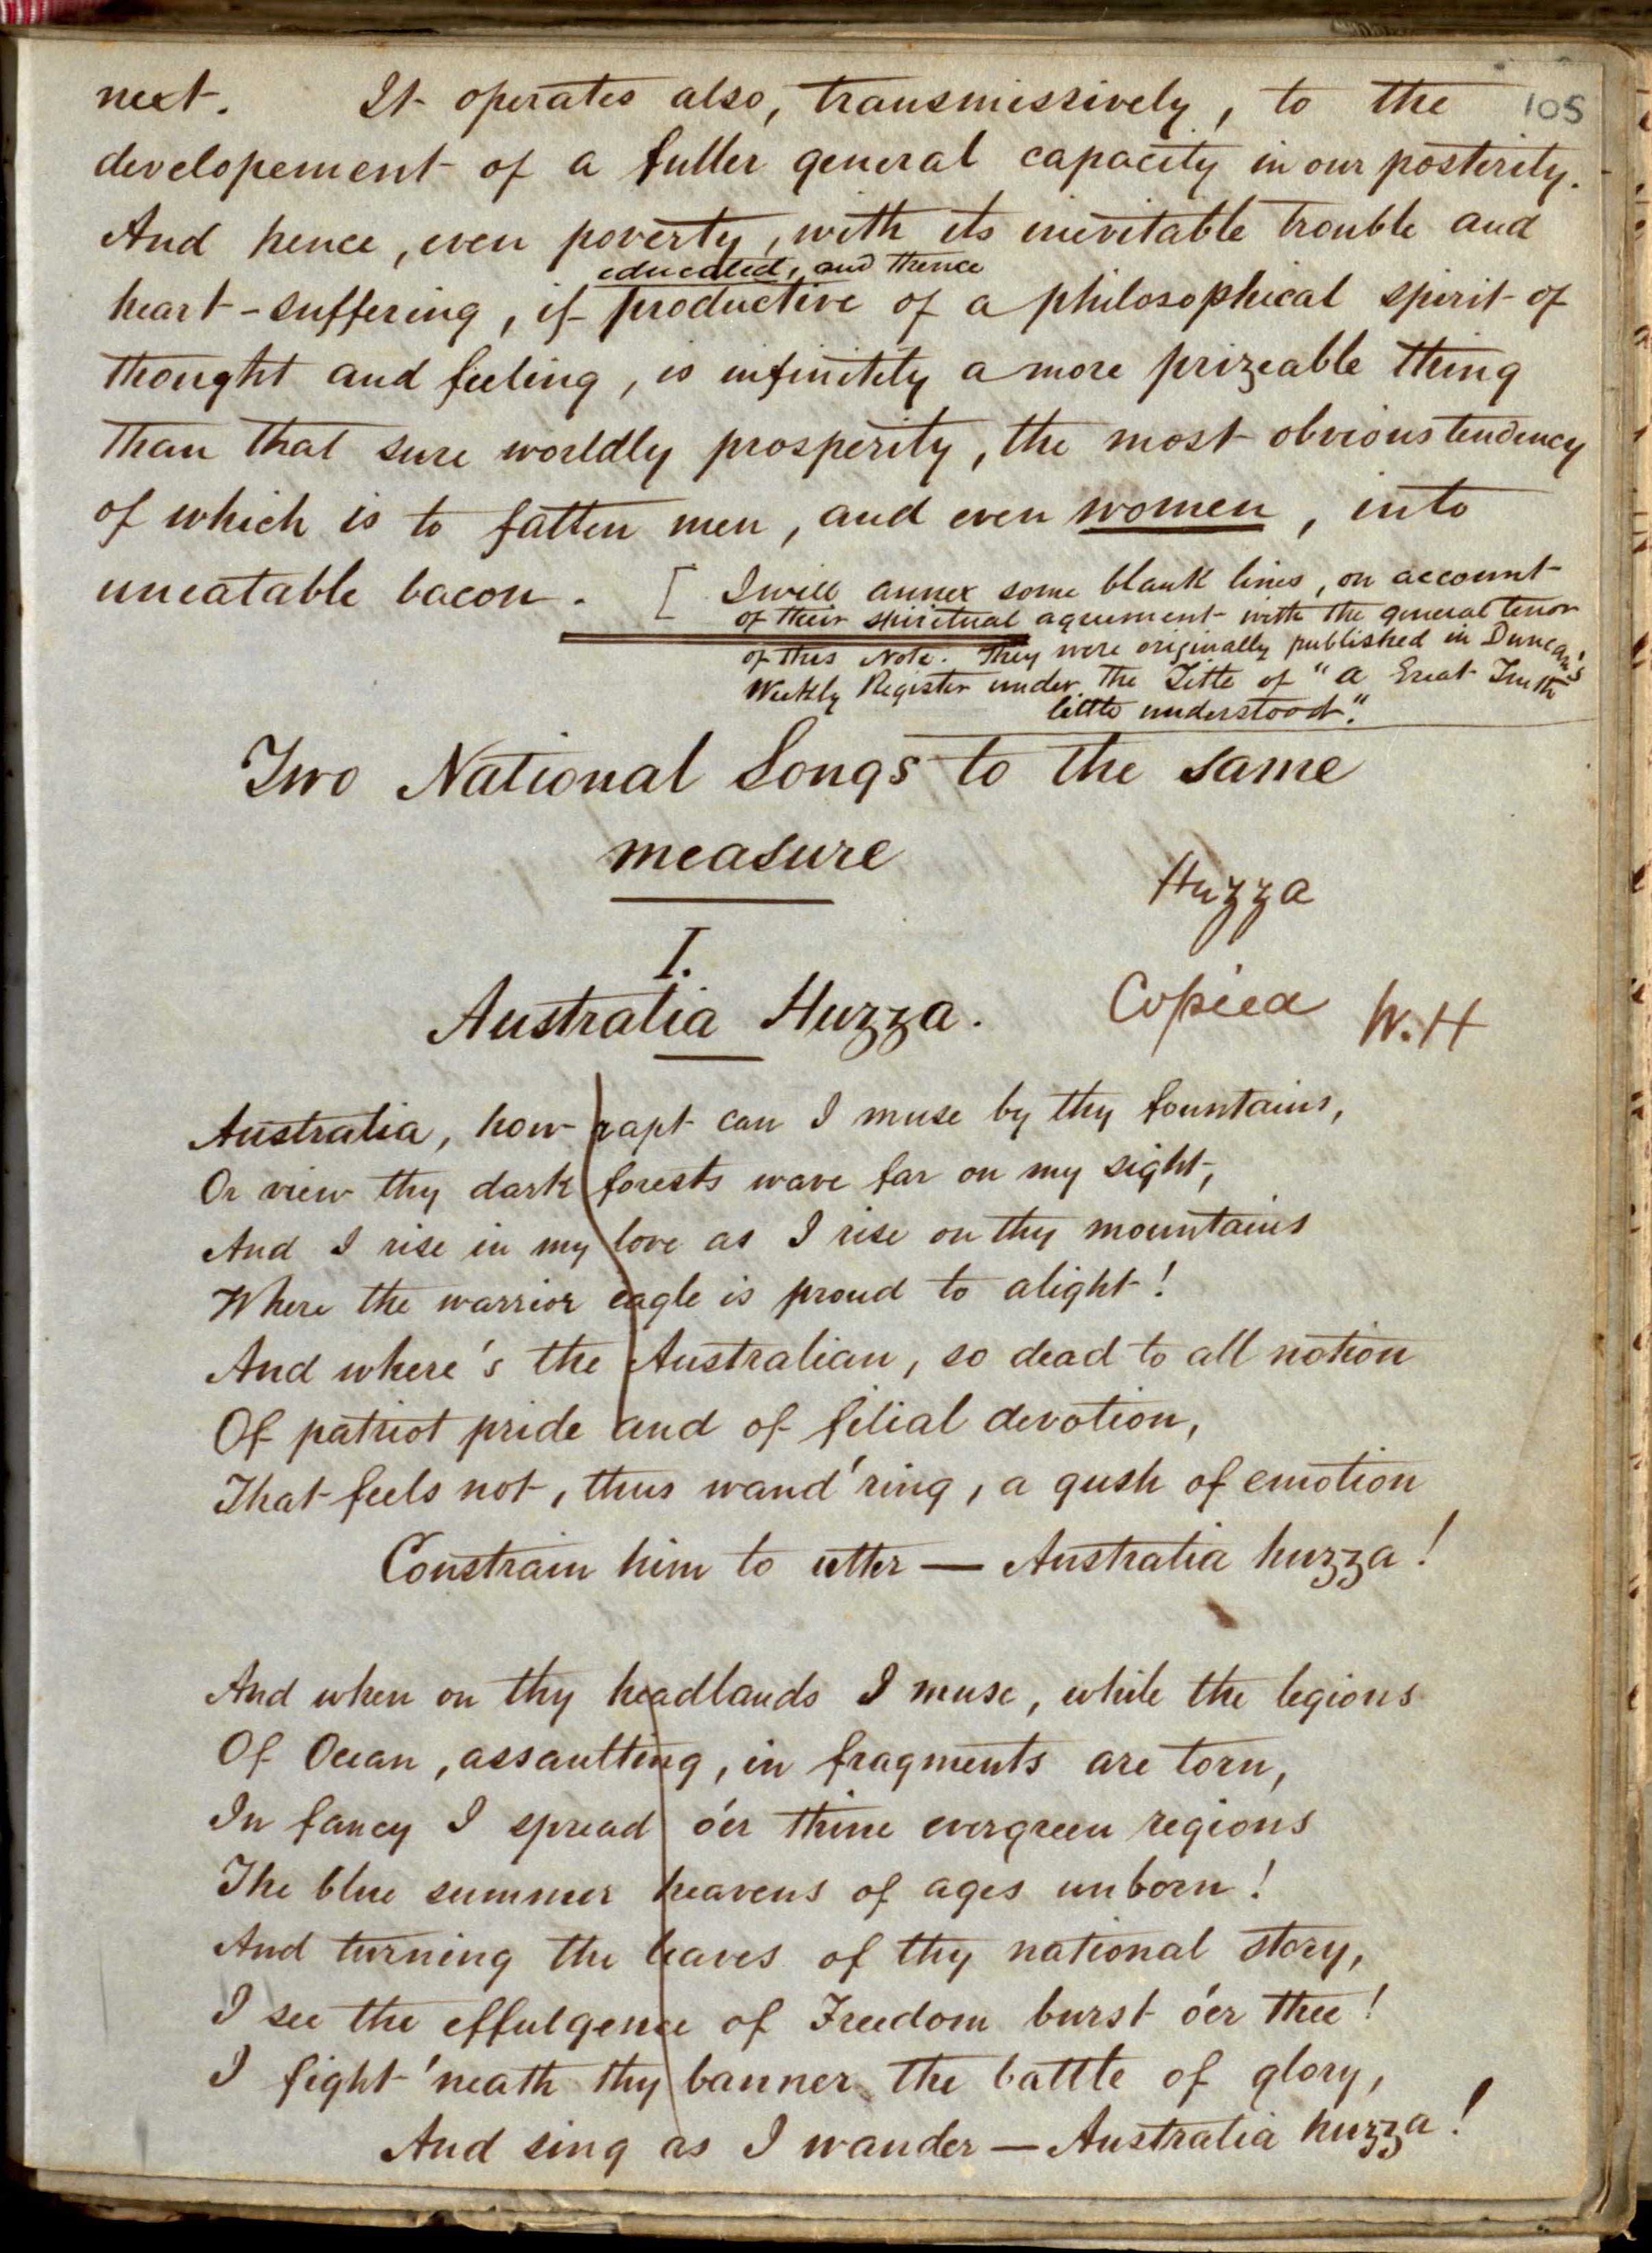 105
next. It operates also, transmissively, to the
developement of a fuller general capacity in our posterity.
And hence, even poverty, with its inevitable trouble and
educated, and thence
heart-suffering, if productive of a philosophical spirit of
thought and feeling, is infinitely a more prizeable thing
than that sure worldly prosperity, the most obvious tendency
of which is to fatten men, and even women, into
uneatable bacon. [ I will annex some blank lines, on account
of their spiritual agreement with the general tenor
of this Note. They were originally published in Duncan's
Weekly Register under the Title of "A Great Truth
little understood".
Two National Songs to the same
measure
Huzza
I.
Australia Huzza. Copied W. H
Australia, how rapt can I muse by thy fountains,
Or view thy dark forests wave far on my sight,
And I rise in my love as I rise on thy mountains
Where the warrior eagle is proud to alight!
And where's the Australian, so dead to all notion
Of patriot pride and of filial devotion,
That feels not, thus wand'ring, a gush of emotion
Constrain him to utter — Australia huzza!
And when on thy headlands I muse, while the legions
Of Ocean, assaulting, in fragments are torn,
In fancy I spread o'er thine evergreen regions
The blue summer heavens of ages unborn!
And turning the leaves of thy national story,
I see the effulgence of Freedom burst o'er thee!
I fight 'neath thy banner the battle of glory,
And sing as I wander — Australia huzza!